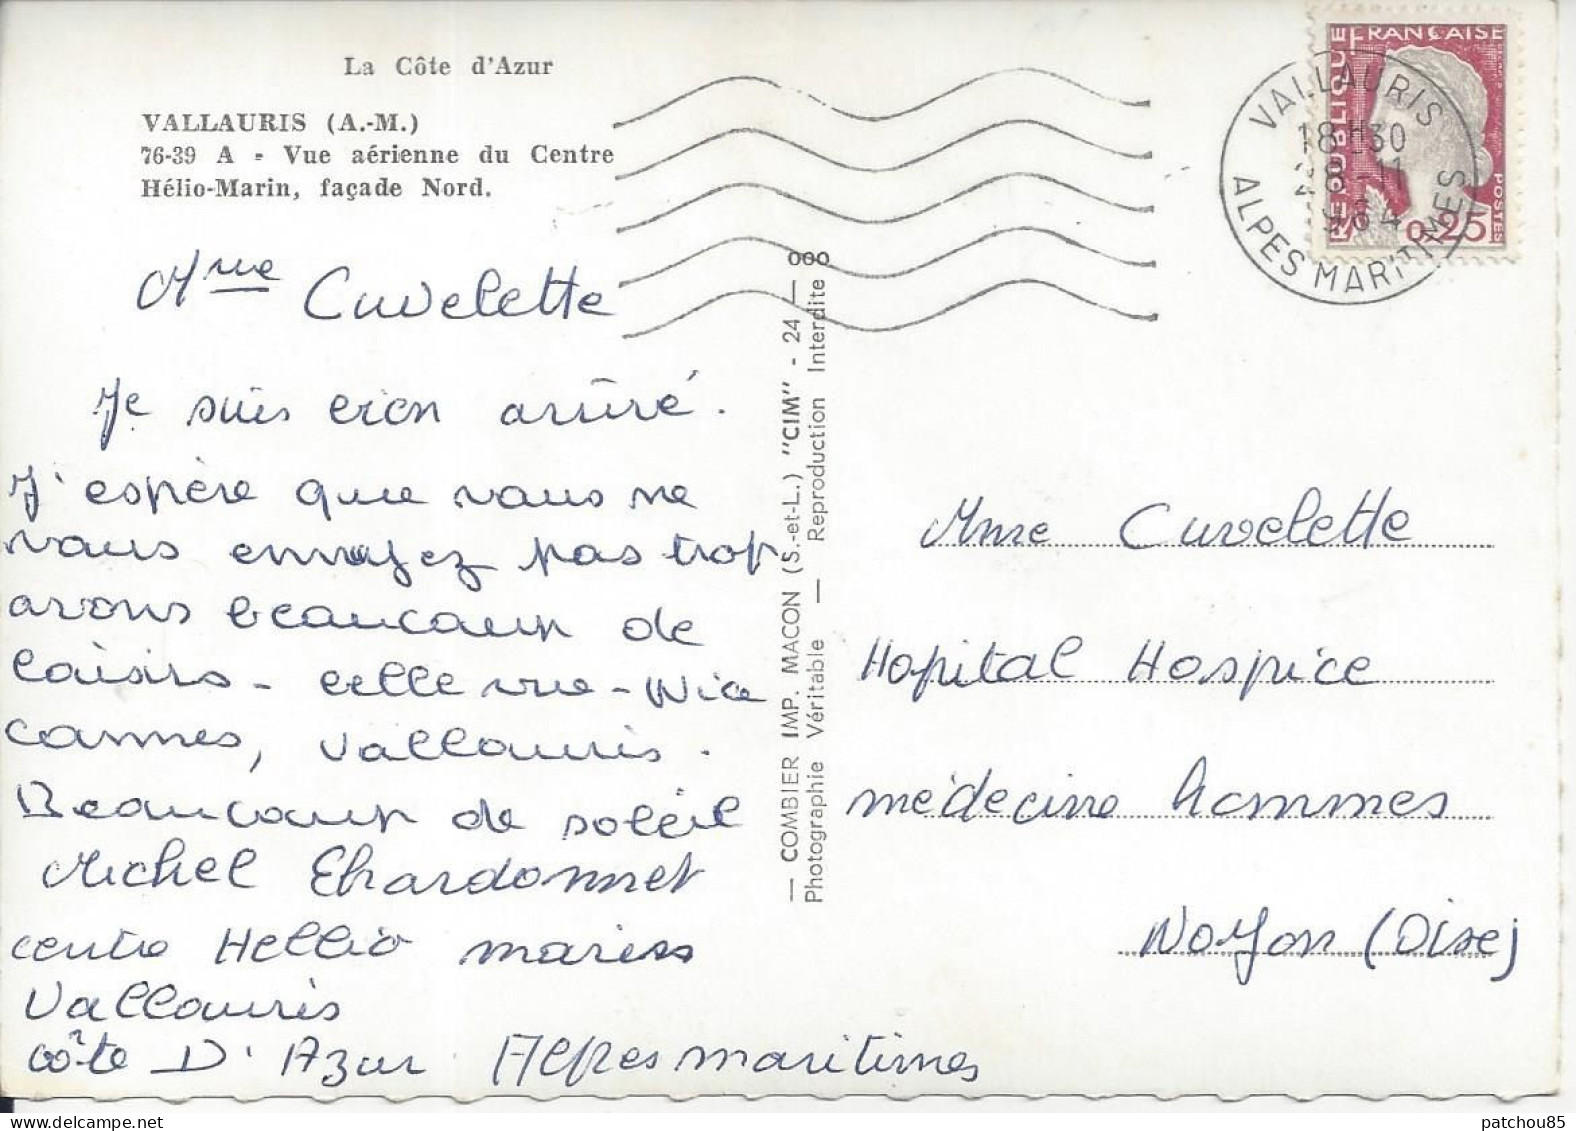 La Côte d'Azur
VALLAURIS (A.-M.)
76-39 A - Vue aérienne du Centre
Hélio-Marin, façade Nord.
RÉPUBLIQUE FRANÇAISE
POSTES
0,25
VALLAURIS
18H30
28-11
1964
ALPES MARITIMES
Mme Cuvelette
Je suis bien arrivé.
J'espère que vous ne
vous ennuyez pas trop
avons beaucoup de
loisirs - belle vue - Nice
cannes, Vallauris.
Beaucoup de soleil
Michel Chardonnet
centre Hellio mariss
Vallauris
côte D'Azur Alpes maritimes
— COMBIER IMP. MACON (S.-et-L.) "CIM" - 24 — 000
Photographie Véritable — Reproduction Interdite
Mme Cuvelette
Hopital Hospice
médecine hommes
Noyon (Oise)
patchou85